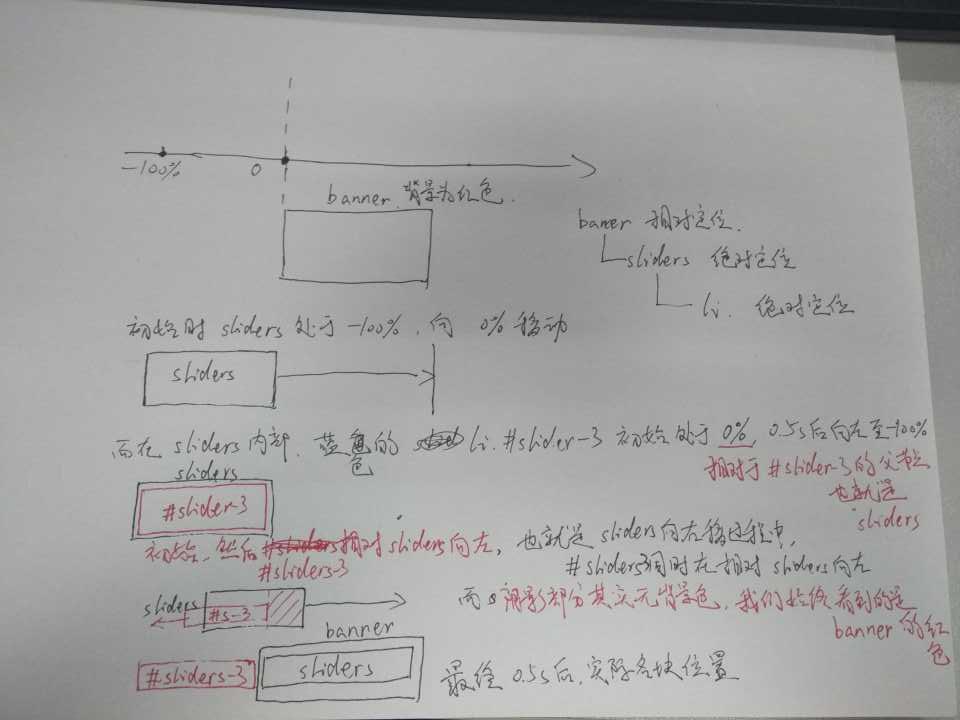 -100%
0
banner.背景为红色.
banner 相对定位.
sliders 绝对定位
li. 绝对定位
初始时 sliders 处于 -100%. 向 0% 移动
sliders
而在 sliders 内部. 蓝色的 li. #slider-3 初始处于 0%, 0.5s后向左至-100%
相对于#slider-3的父节点
也就是
sliders
sliders
#slider-3
初始. 然后 #sliders-3 相对 sliders 向左, 也就是 sliders 向右移过程中,
#sliders3同时在相对 sliders 向左
sliders
#s-3
而 阴影部分其实无背景色, 我们始终看到的是
banner 的红色
banner
#sliders-3
sliders
最终 0.5s后, 实际各块位置